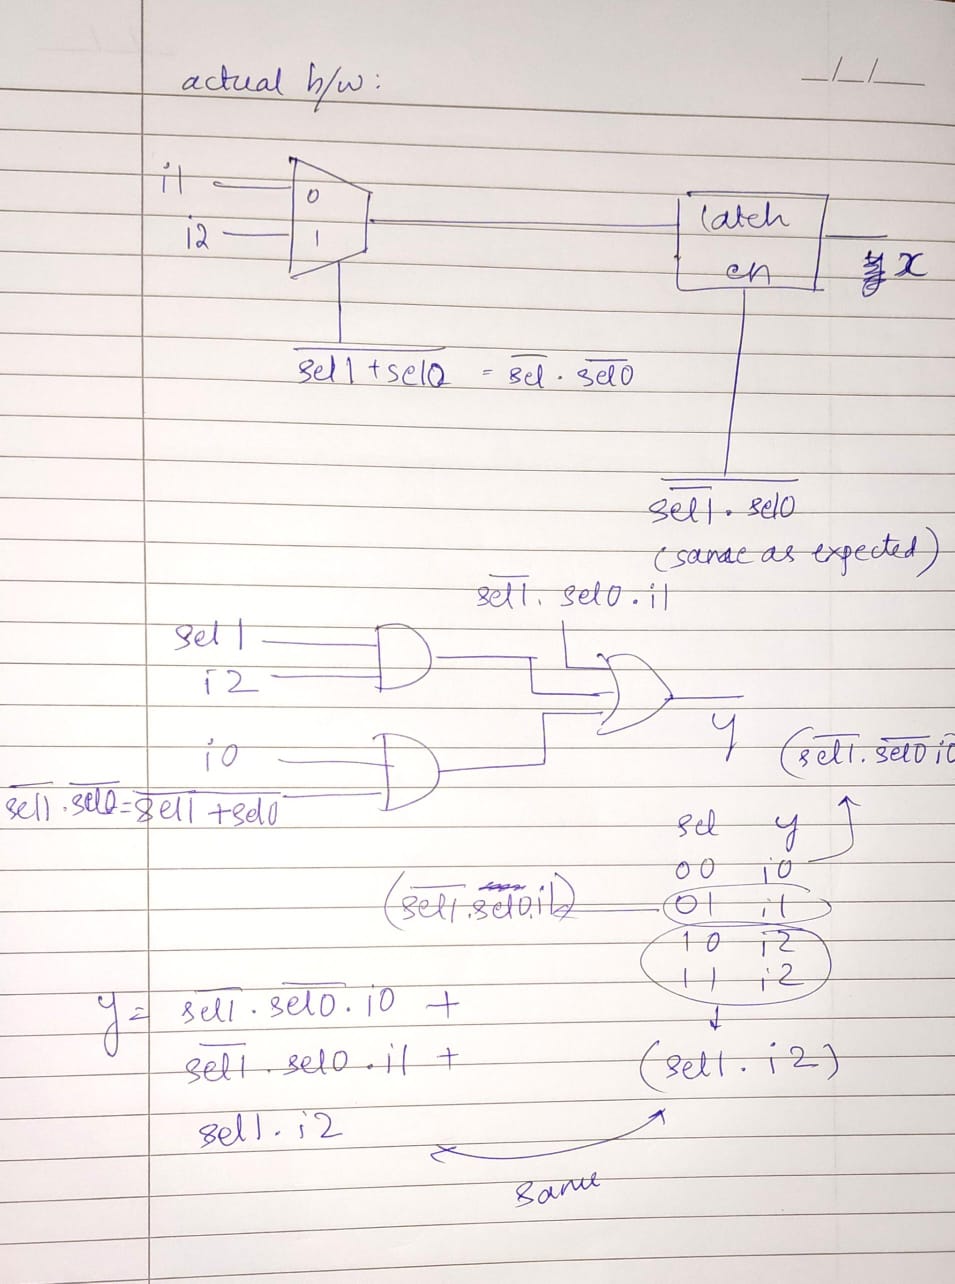 actual h/w:
_/_/__
i1
0
i2
1
latch
en
x
\overline{sel1+sel0} = \overline{sel} . \overline{sel0}
\overline{\overline{sel1} . sel0}
(same as expected)
\overline{sel1} . sel0 . i1
sel1
i2
y
i0
(\overline{sel1} . \overline{sel0} i0
\overline{sel1} . \overline{sel0} = \overline{sel1 + sel0}
sel y
00 i0
(\overline{sel1} . sel0.i1) 01 i1
10 i2
11 i2
y = \overline{sel1} . \overline{sel0} . i0 +
\overline{sel1} . sel0 . i1 +
(sel1 . i2)
sel1 . i2
same